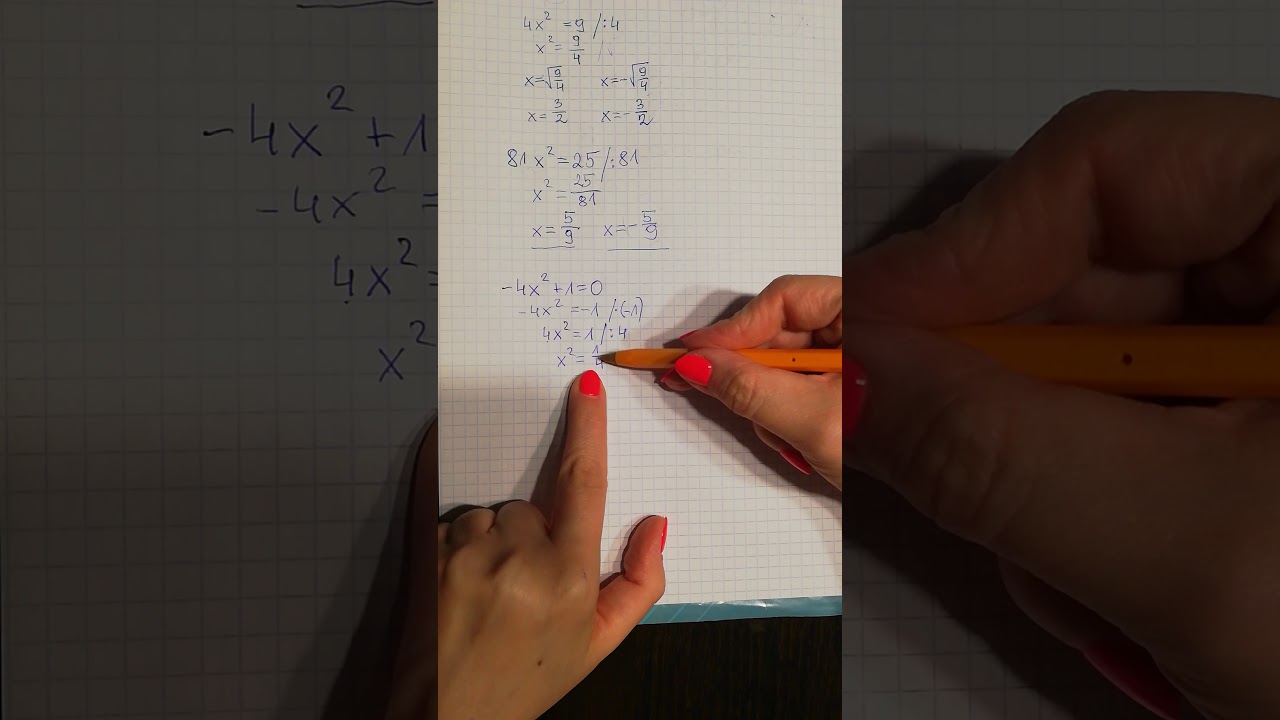 4x² = 9 /:4
x² = 9/4
x = √9/4 x = -√9/4
x = 3/2 x = -3/2
81 x² = 25 /:81
x² = 25/81
x = 5/9 x = -5/9
-4x² + 1 = 0
-4x² = -1 /:(-1)
4x² = 1 /:4
x² = 1/4